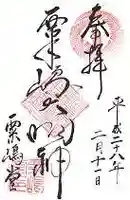 奉拝
平成二十八年
二月十一日
粟嶋大明神
粟嶋堂